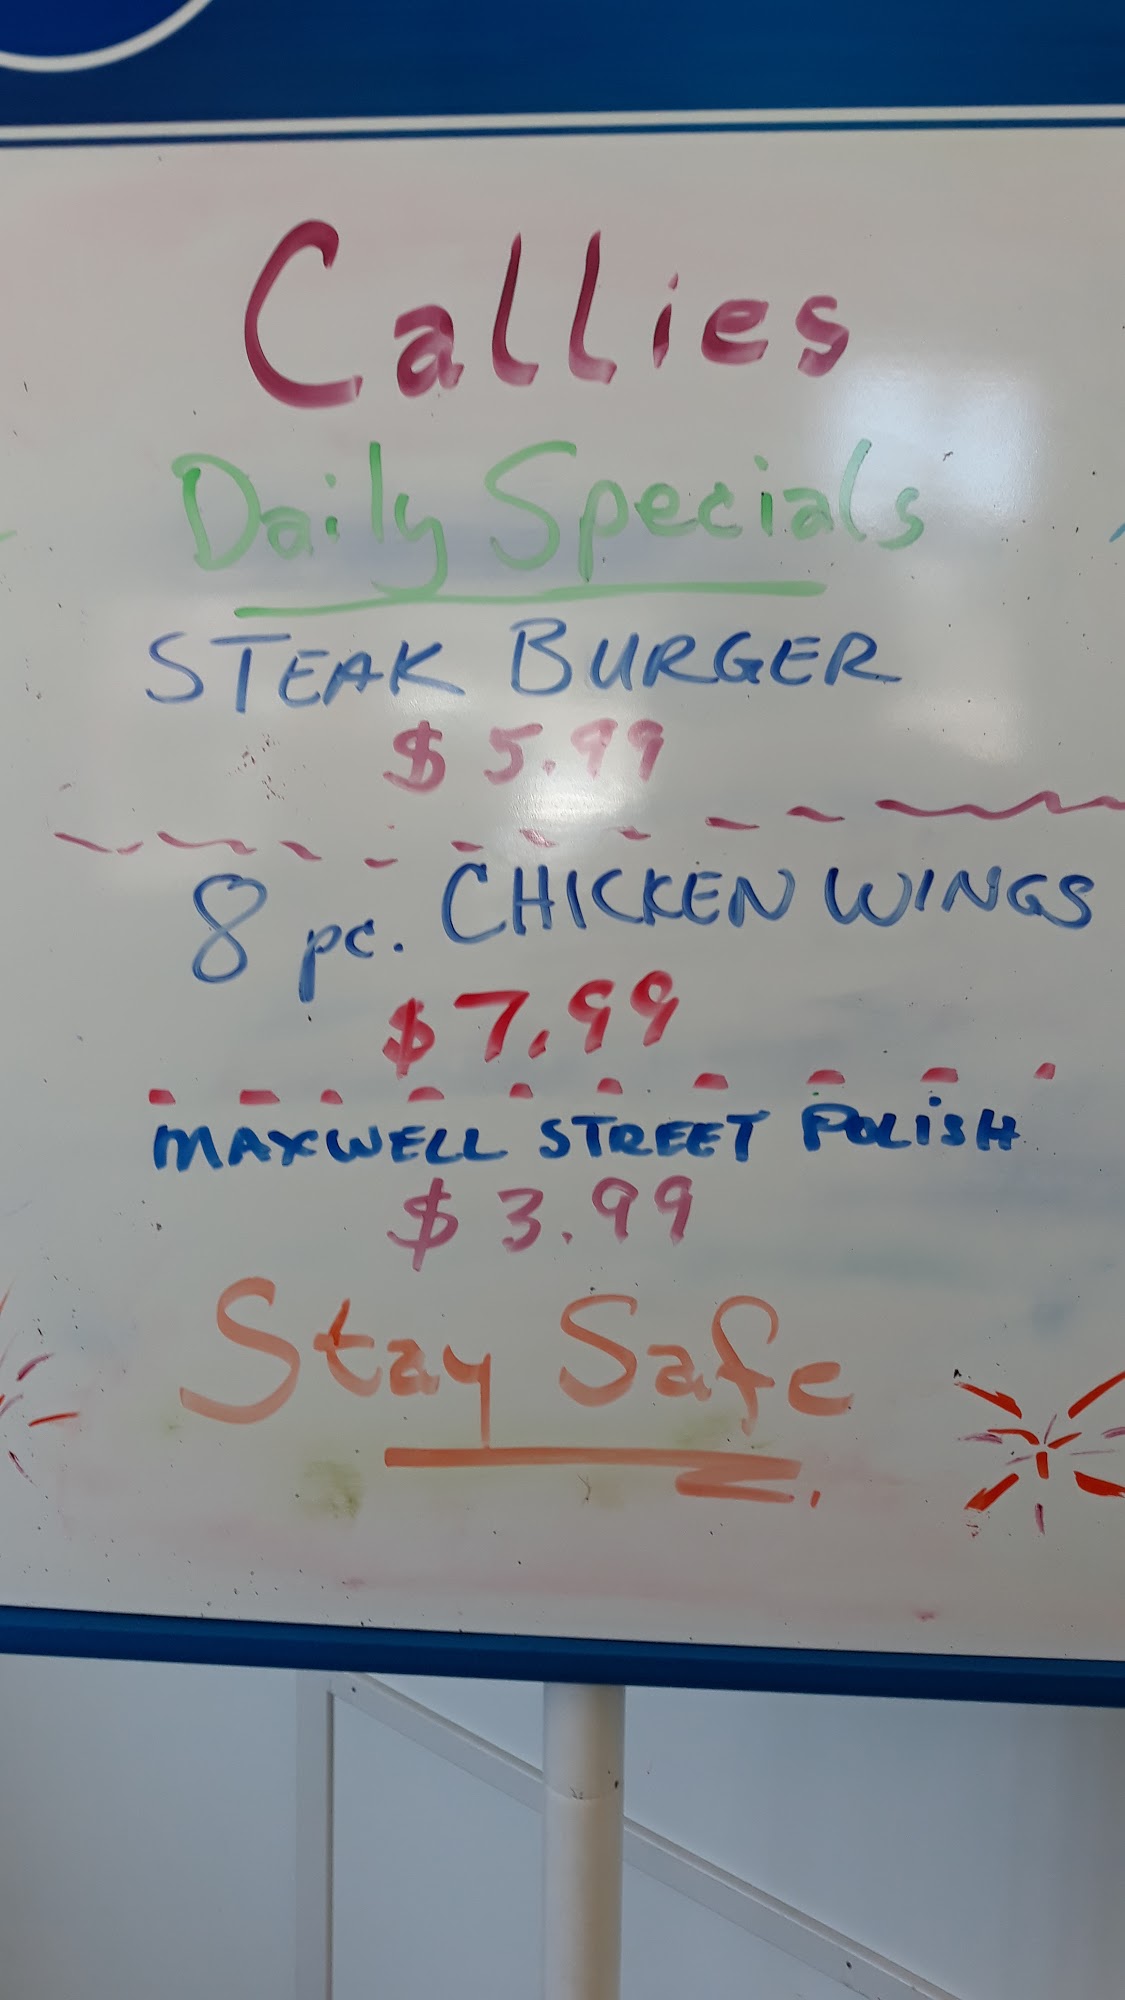 Callies
Daily Specials
STEAK BURGER
$5.99
8 pc. CHICKEN WINGS
$7.99
MAXWELL STREET POLiSH
$3.99
Stay Safe